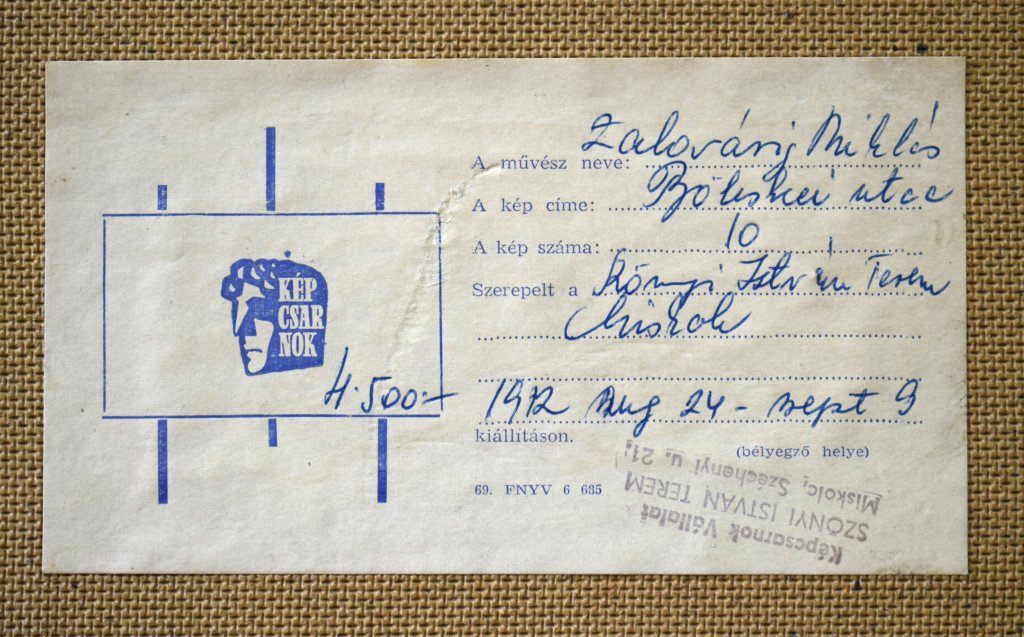 KÉP
CSAR
NOK
4.500.-
A művész neve: Zalaváry Miklós
A kép címe: Bölcskei utca
A kép száma: 10
Szerepelt a Szőnyi István Terem
Miskolc
1972 Aug 24 - szept 9
kiállításon.
(bélyegző helye)
69. FNYV 6 635
Képcsarnok Vállalat
SZŐNYI ISTVÁN TEREM
Miskolc, Széchenyi u. 21;